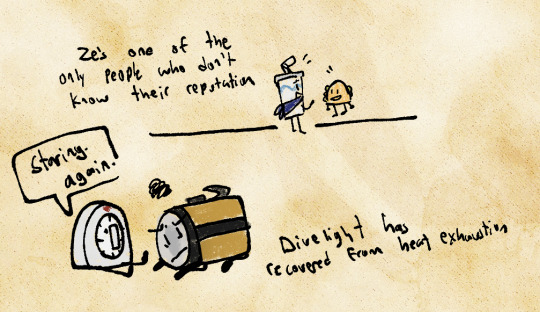 Ze's one of the
only people who don't
know their reputation
Staring.
again.
Divelight has
recovered from heat exhaustion